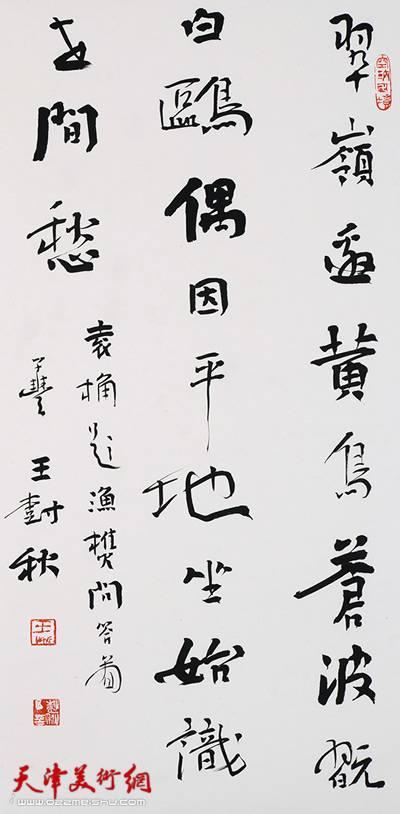 翠嶺邀黄鳥蒼波翫
白鷗偶因平地坐始識
世間愁
袁桷題漁樵問答圖
子豐 王樹秋
天津美術網
www.022meishu.com